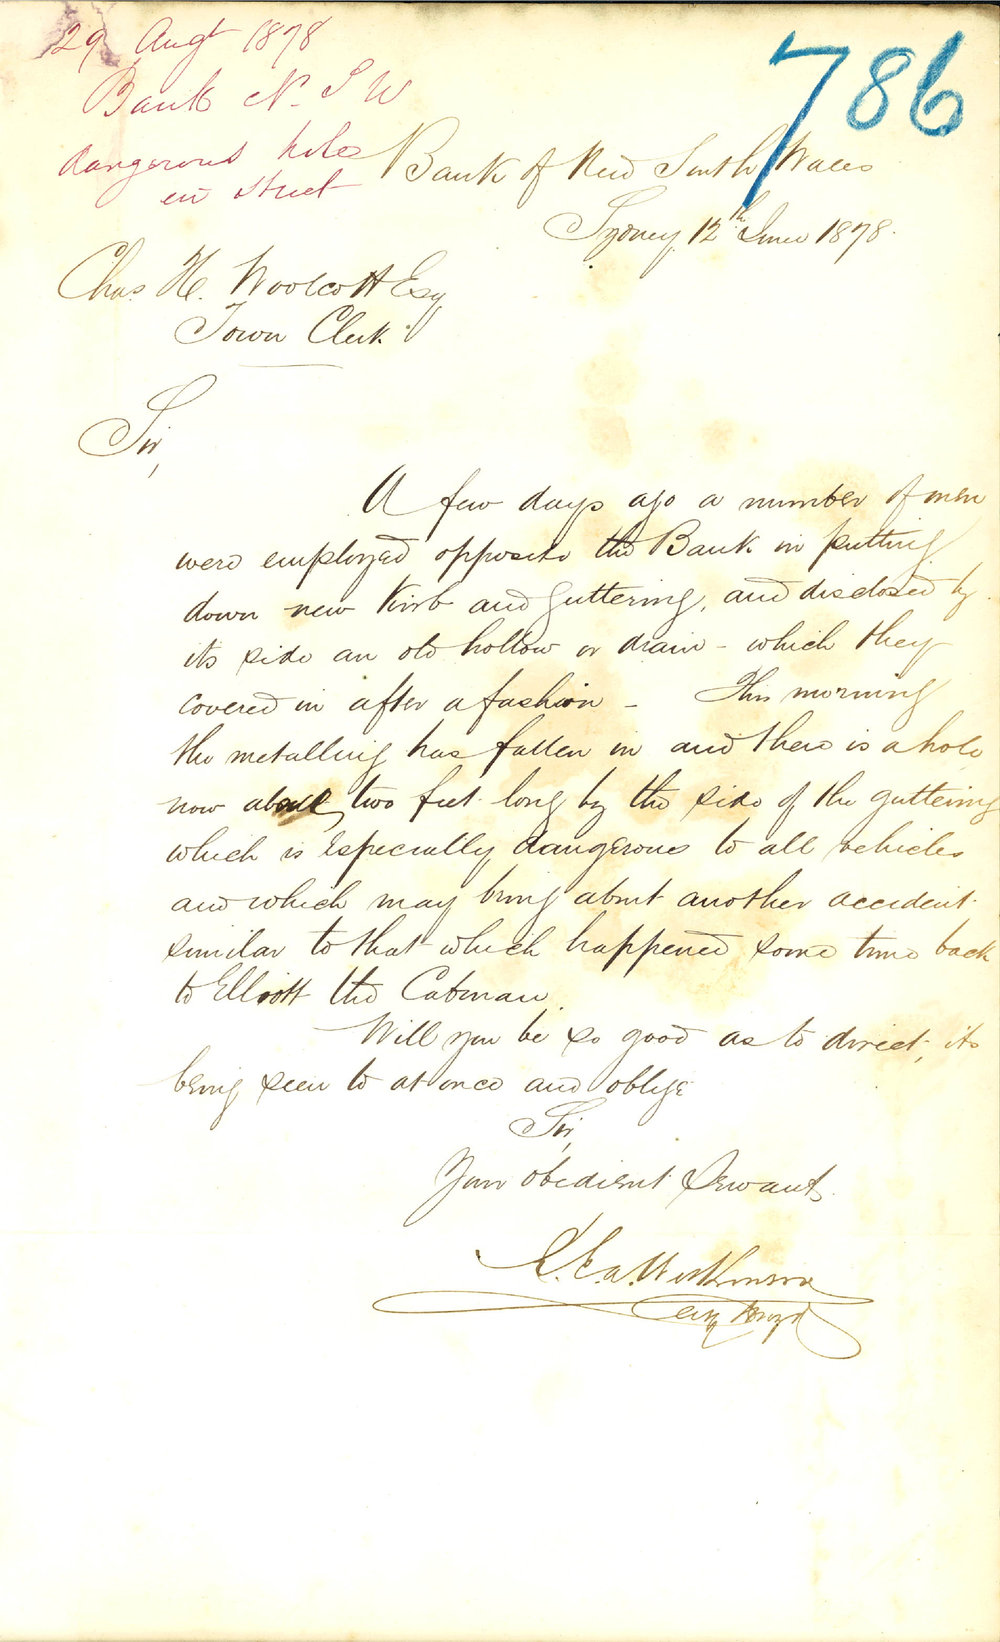 29 Augt 1878
Bank N. S W
dangerous hole
in street
786
Bank of New South Wales
Sydney 12th June 1878.
Chas H. Woolcott Esq
Town Clerk
Sir,
A few days ago a number of men
were employed opposite the Bank in putting
down new Kirb and guttering, and disclosed by
its side an old hollow or drain - which they
covered in after a fashion - This morning
the metalling has fallen in and there is a hole
now about two feet long by the side of the guttering
which is especially dangerous to all vehicles
and which may bring about another accident
similar to that which happened some time back
to Elliott the Cabman.
Will you be so good as to direct, its
being seen to at once and oblige
Sir,
Your obedient Servant